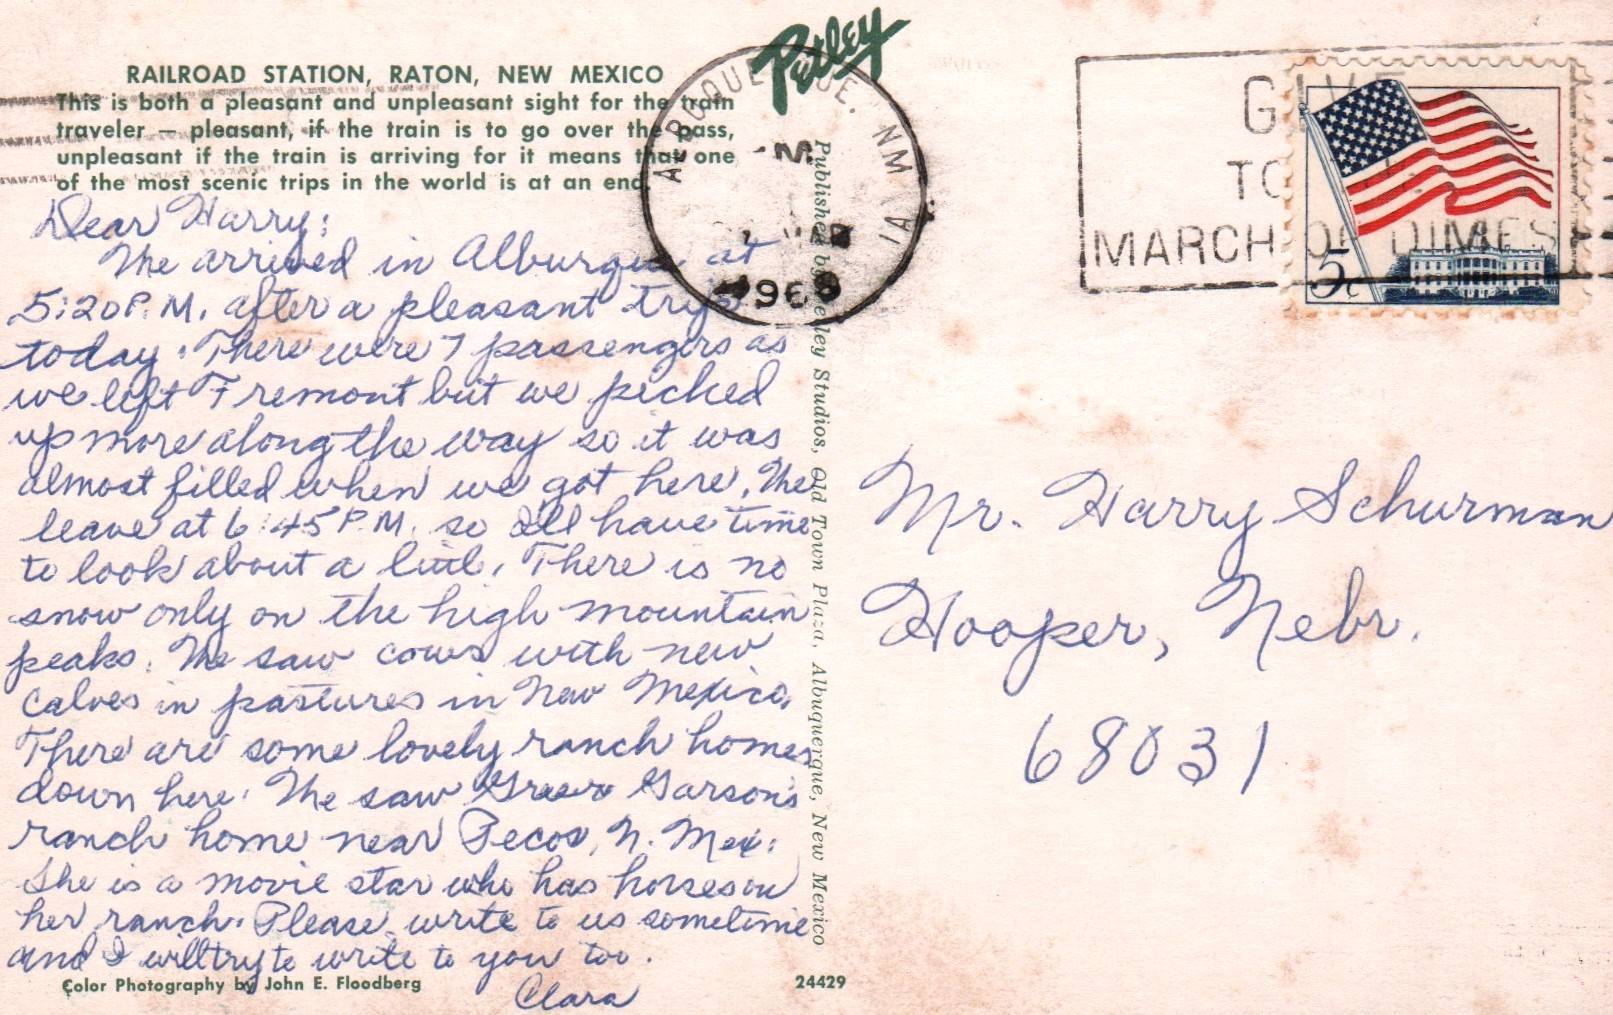 Petley
RAILROAD STATION, RATON, NEW MEXICO
This is both a pleasant and unpleasant sight for the train
traveler — pleasant, if the train is to go over the pass,
unpleasant if the train is arriving for it means that one
of the most scenic trips in the world is at an end.
Dear Harry:
We arrived in Alburque at
5:20 P.M. after a pleasant trip
today. There were 7 passengers as
we left Fremont but we picked
up more along the way so it was
almost filled when we got here. We
leave at 6:45 P.M. so I'll have time
to look about a little. There is no
snow only on the high mountain
peaks. We saw cows with new
calves in pastures in New Mexico.
There are some lovely ranch homes
down here. We saw Greer Garson's
ranch home near Pecos, N. Mex.
She is a movie star who has horses on
her ranch. Please write to us sometime
and I will try to write to you too.
Clara
Color Photography by John E. Floodberg
24429
Published by Petley Studios, Old Town Plaza, Albuquerque, New Mexico
ALBUQUERQUE, NM
MAR
196
GIVE
TO
MARCH OF DIMES
5c
Mr. Harry Schurman
Hooper, Nebr.
68031